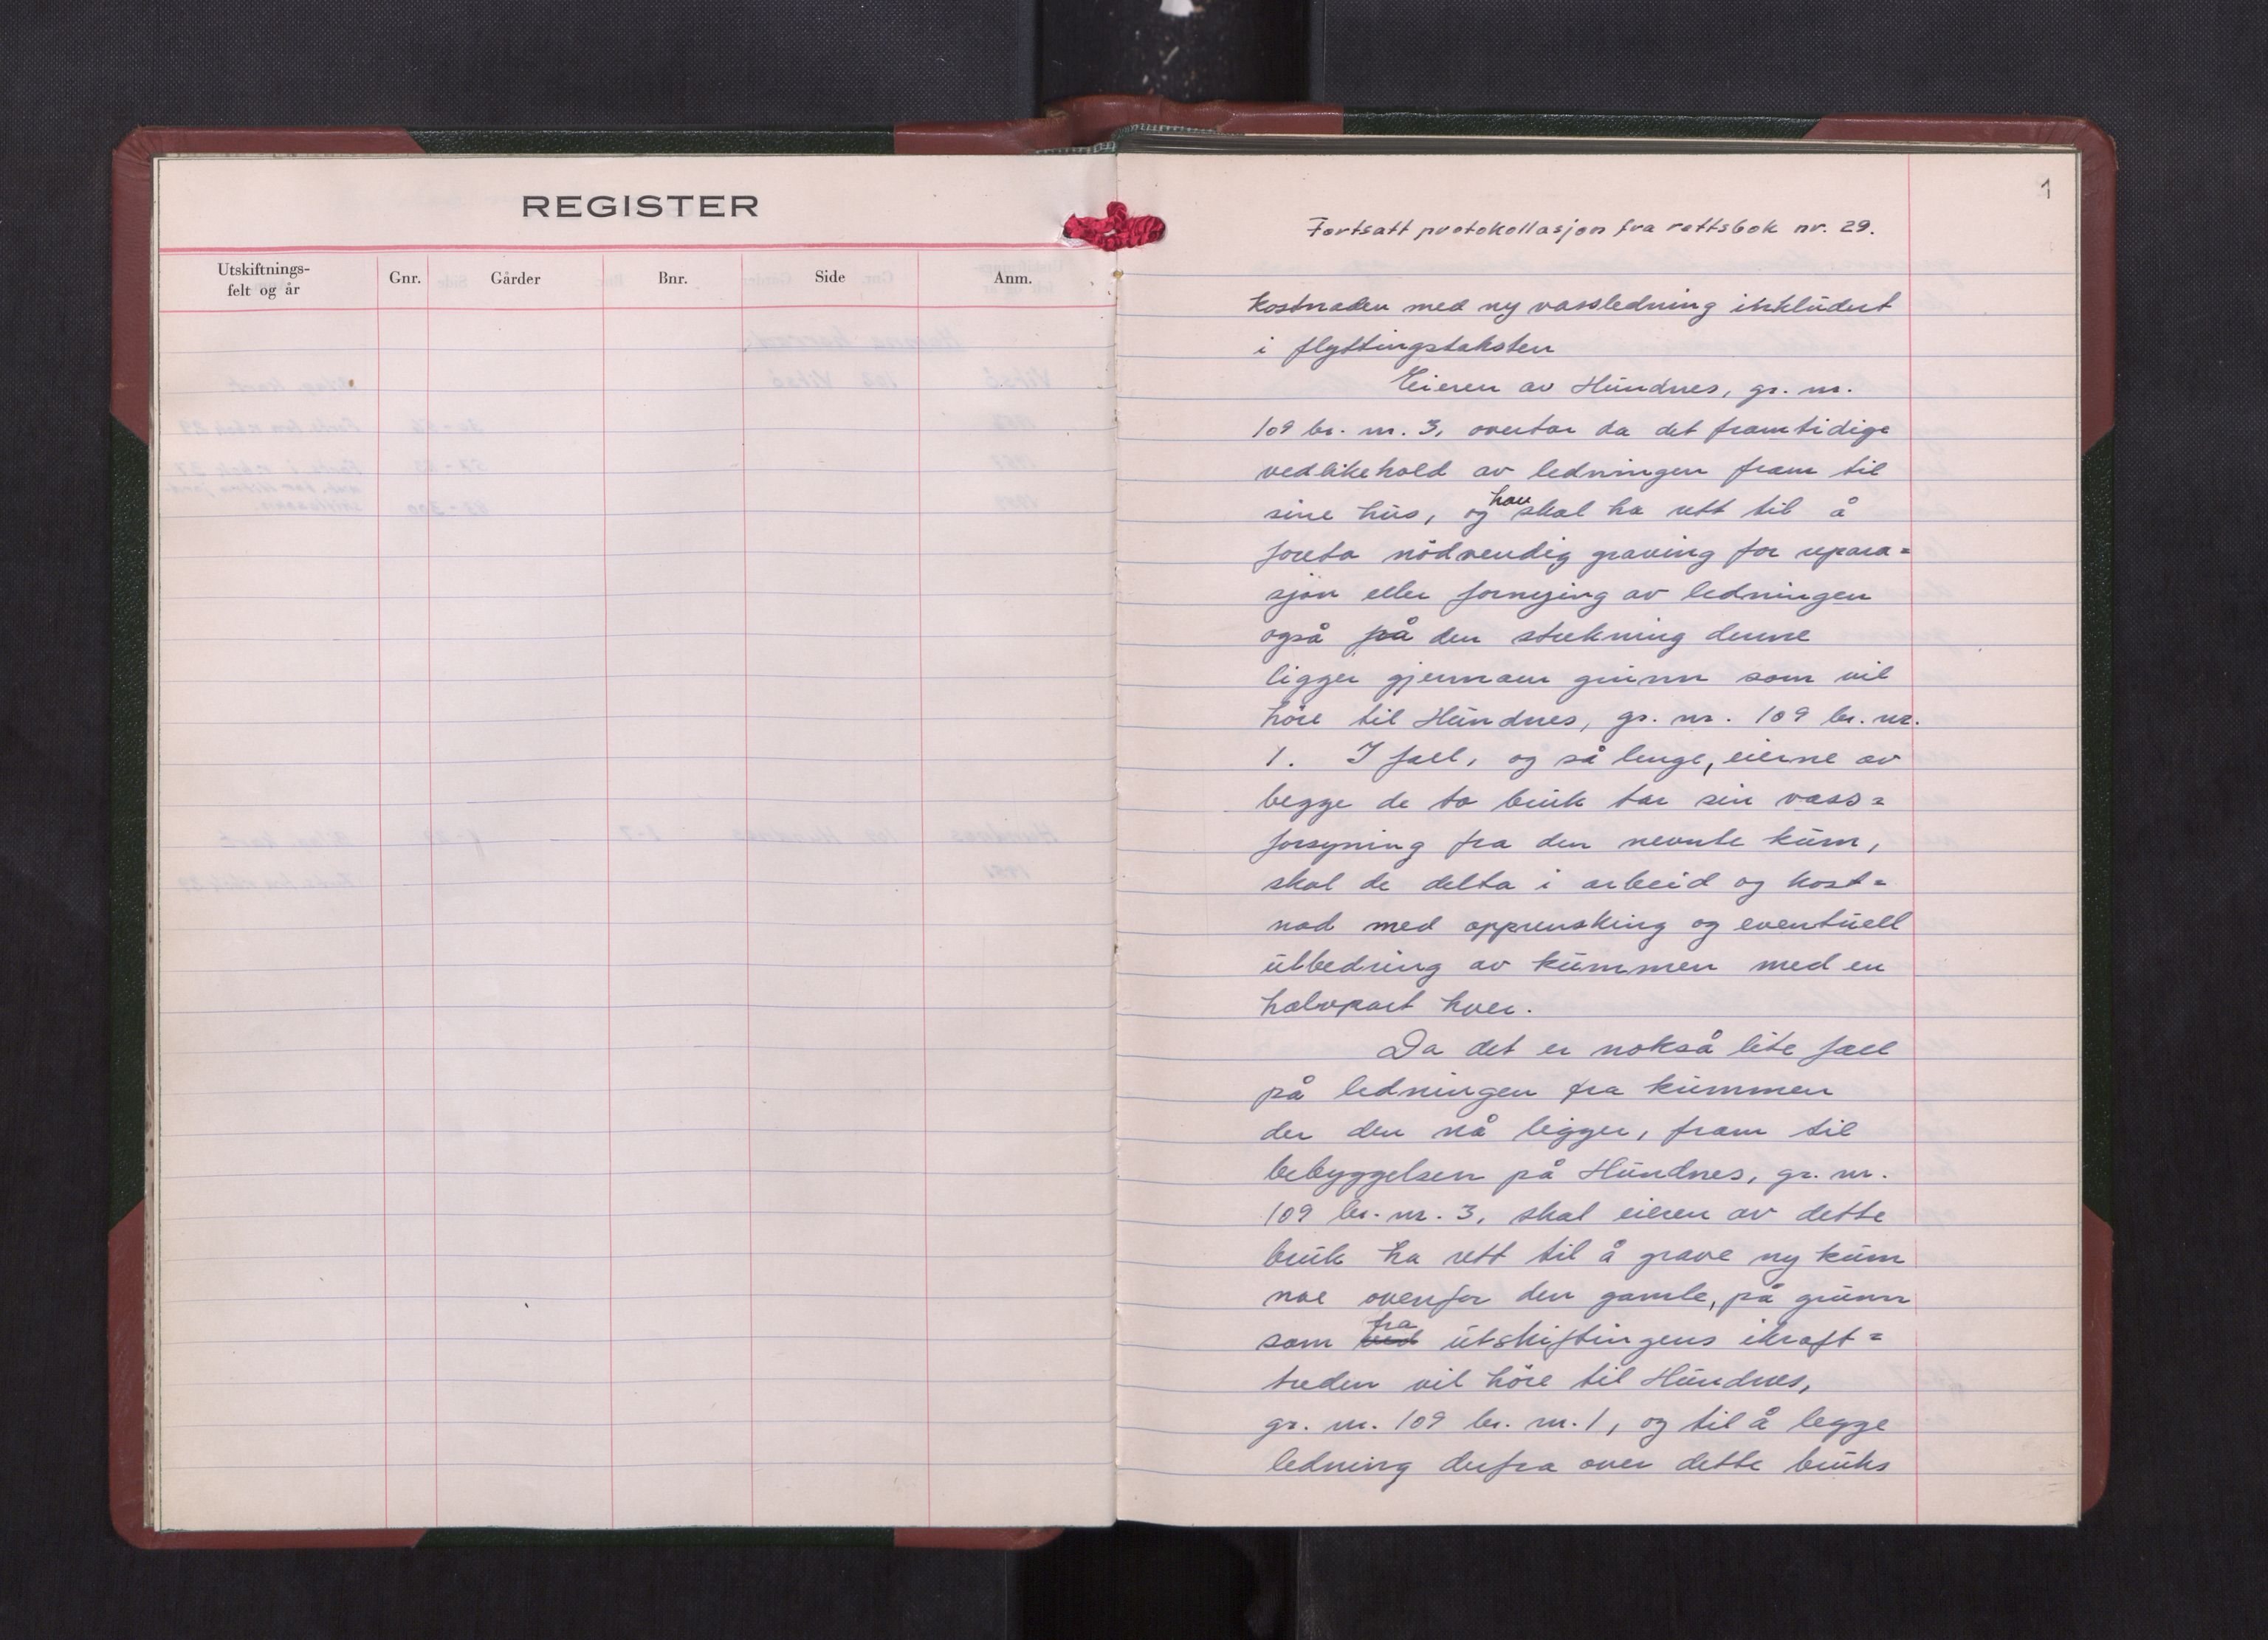 REGISTER
Utskiftnings-
felt og år
Gnr.
Gårder
Bnr.
Side
Anm.
1
Fortsatt protokollasjon fra rettsbok nr. 29.
kostnaden med ny vassledning inkludert
i flyttingstaksten
Eieren av Hundnes, gr. nr.
109 br. nr. 3, overtar da det framtidige
vedlikehold av ledningen fram til
sine hus, og han skal ha rett til å
foreta nödvendig graving for repara=
sjon eller fornying av ledningen
også på den strekning denne
ligger gjennom grunn som vil
höre til Hundnes, gr. nr. 109 br. nr.
1. I fall, og så lenge, eierne av
begge de to bruk tar sin vass=
forsyning fra den nevnte kum,
skal de delta i arbeid og kost=
nad med opprensking og eventuell
utbedring av kummen med en
halvpart hver.
Da det er nokså lite fall
på ledningen fra kummen
der den nå ligger, fram til
bebyggelsen på Hundnes, gr. nr.
109 br. nr. 3, skal eieren av dette
bruk ha rett til å grave ny kum
noe ovenfor den gamle, på grunn
som ved fra utskiftingens ikraft=
treden vil höre til Hundnes,
gr. nr. 109 br. nr. 1, og til å legge
ledning derfra over dette bruks